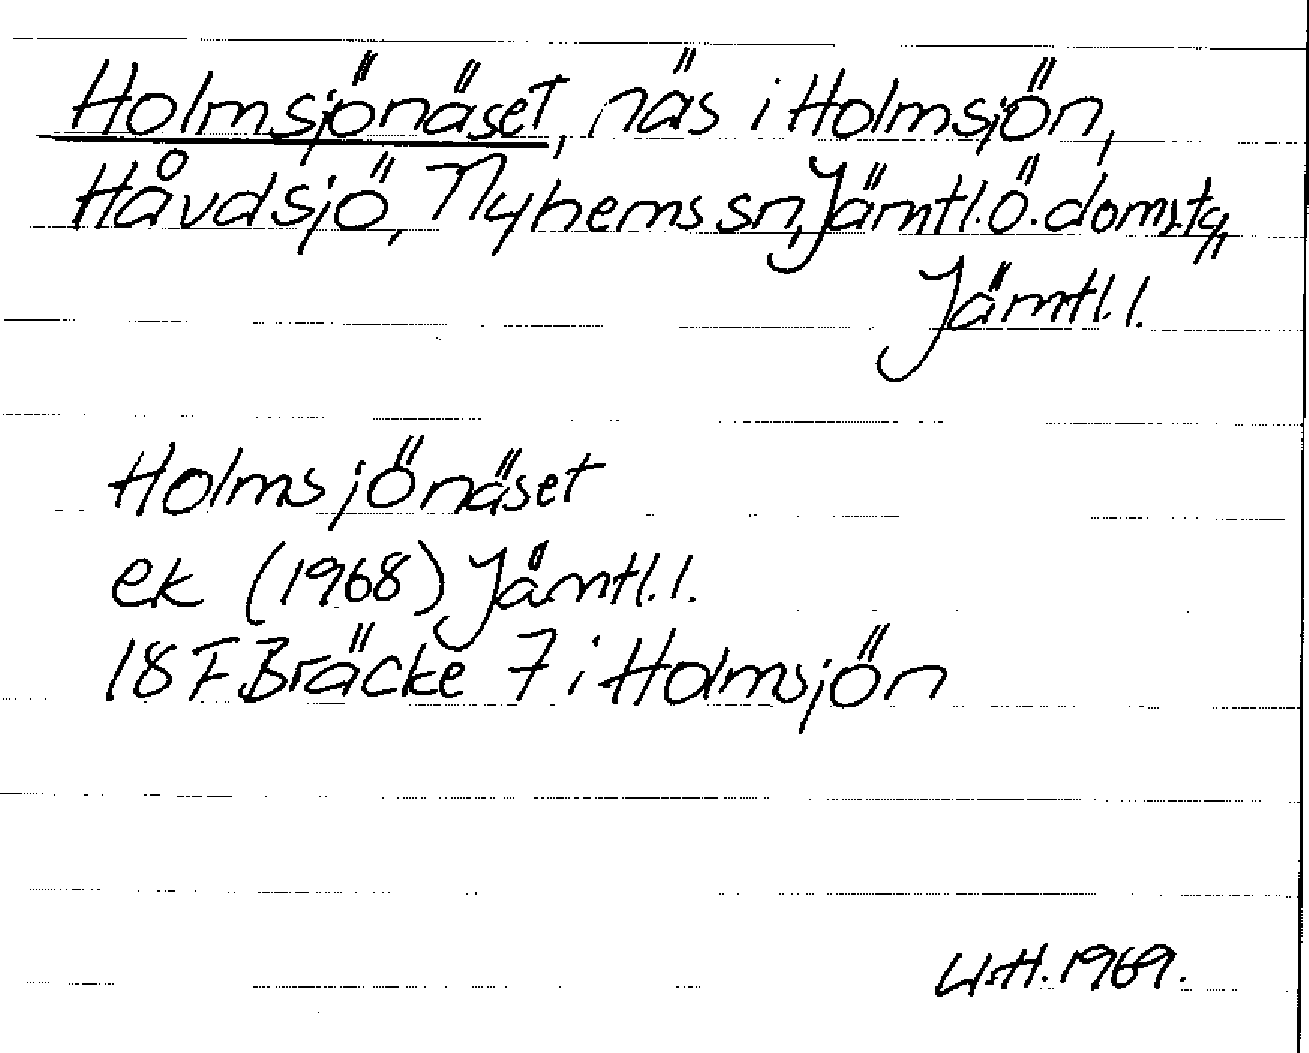 Holmsjönäset, näs i Holmsjön,
Håvdsjö, Nyhems sn, Jämtl.Ö.doms.tg,
Jämtl.l.
Holmsjönäset
ek (1968) Jämtl.l.
18 F Bräcke 7 i Holmsjön
U.H. 1969.